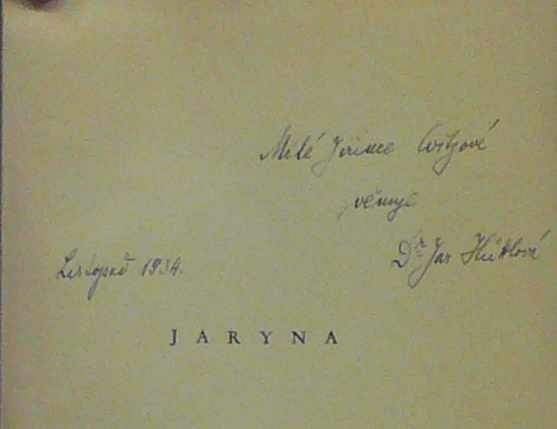 Milé Jiřince
věnuje
Dr. Jar Hüttlová
Listopad 1934.
JARYNA